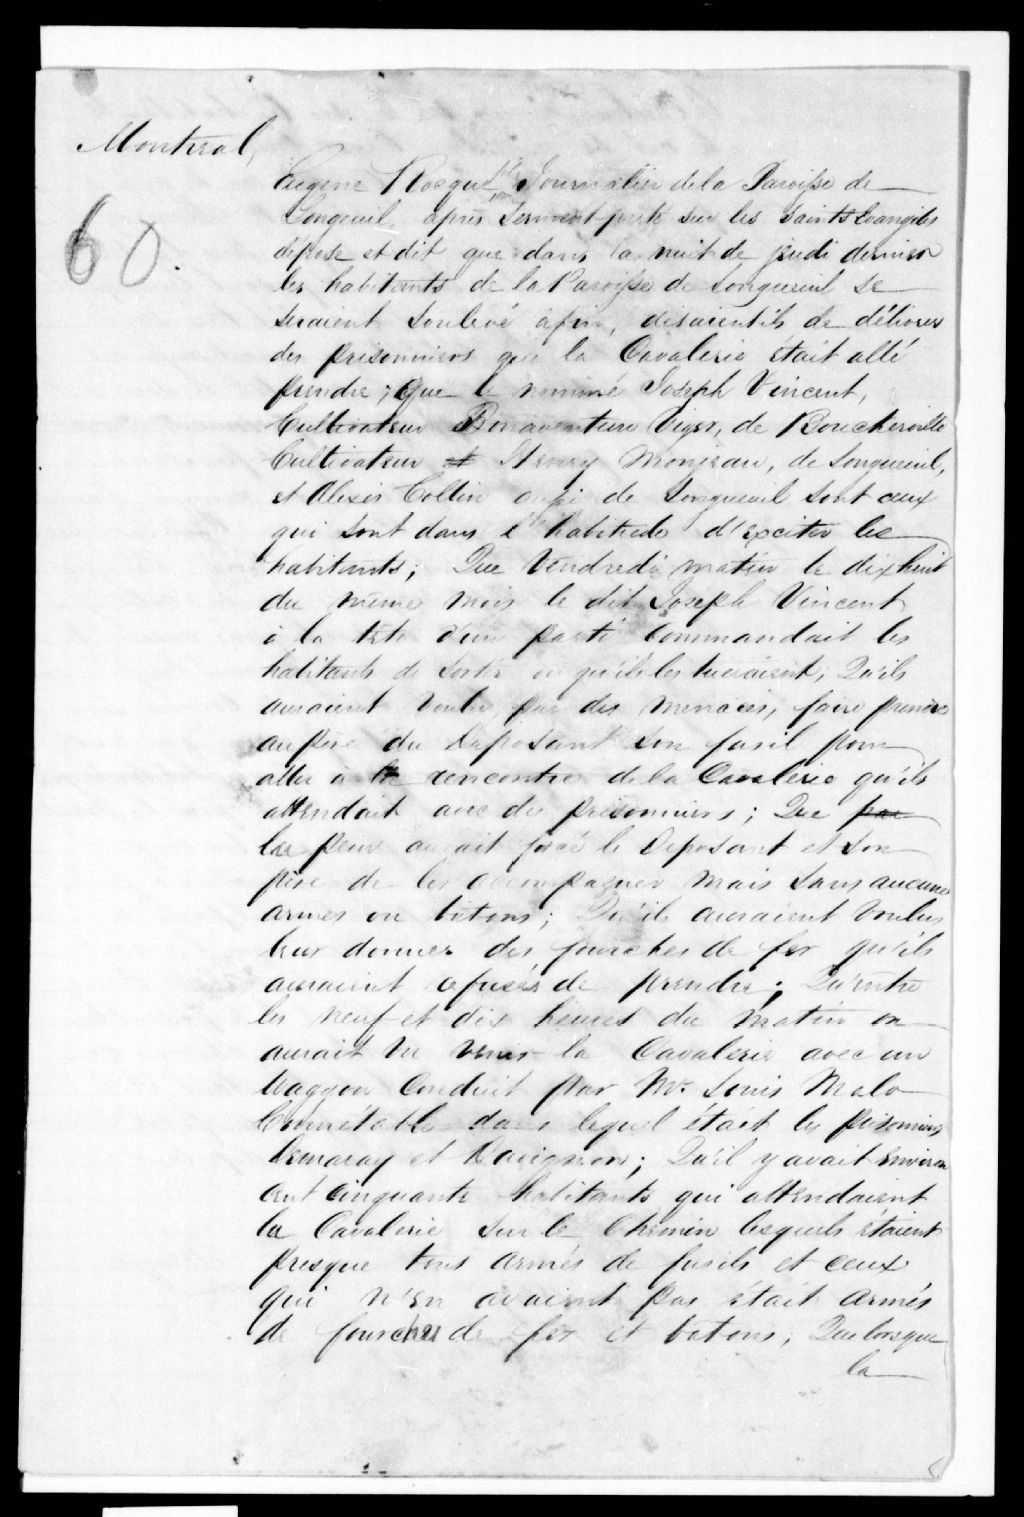 Montreal,
60.
Eugene Rocque fils Journalier de la Paroisse de
Longeuil, après Serment prêté sur les Saints Evangiles
dépose et dit que dans la nuit de jeudi dernier
les habitants de la Paroisse de Longueuil se
seraient Soulevé afin, disaient ils de délivrer
des prisonniers que la Cavalerie était allé
prendre; que le nommé Joseph Vincent,
Cultivateur Bonaventure Viger, de Boucherville
Cultivateur Henry Monjeau, de Longueuil,
et Alexis Collin aussi de Longueuil sont ceux
qui sont dans l'habitude d'exciter les
habitants; Que Vendredi matin le dixhuit
du même mois le dit Joseph Vincent
à la tête d'un parti Commandait les
habitants de sortir ou qu'ils les tueraient; Qu'ils
auraient voulu, par des menaces, faire prendre
au père du Déposant son fusil pour
aller à la rencontre de la Cavalerie qu'ils
attendait avec des prisonniers; Que par
la peur aurait forcé le Deposant et son
père de les accompagner mais sans aucunes
armes ou batons; Qu'ils auraient voulus
leur donner des fourches de fer qu'ils
auraient refusés de prendre; Qu'entre
les neuf et dix heures du matin on
aurait vu venir la Cavalerie avec un
Waggon Conduit par Mr. Louis Malo
Connétable dans lequel était les prisonniers
Demaray et Davignon; Qu'il y avait environ
cent cinquante habitants qui attendaient
la Cavalerie sur le Chemin lesquels étaient
presque tous armés de fusils et ceux
qui n'en avaient pas était armés
de fourches de fer et batons; Que lorsque
la